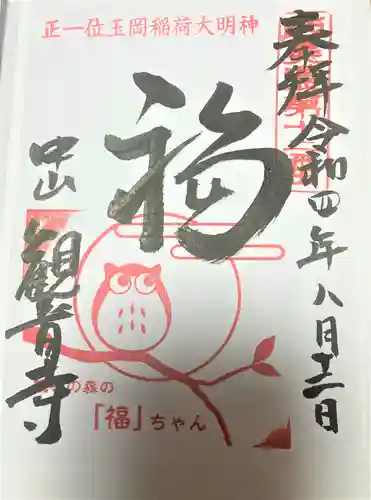 正一位玉岡稲荷大明神
奉拝 令和四年八月十二日
福
中山
観音寺
の森の
「福」ちゃん